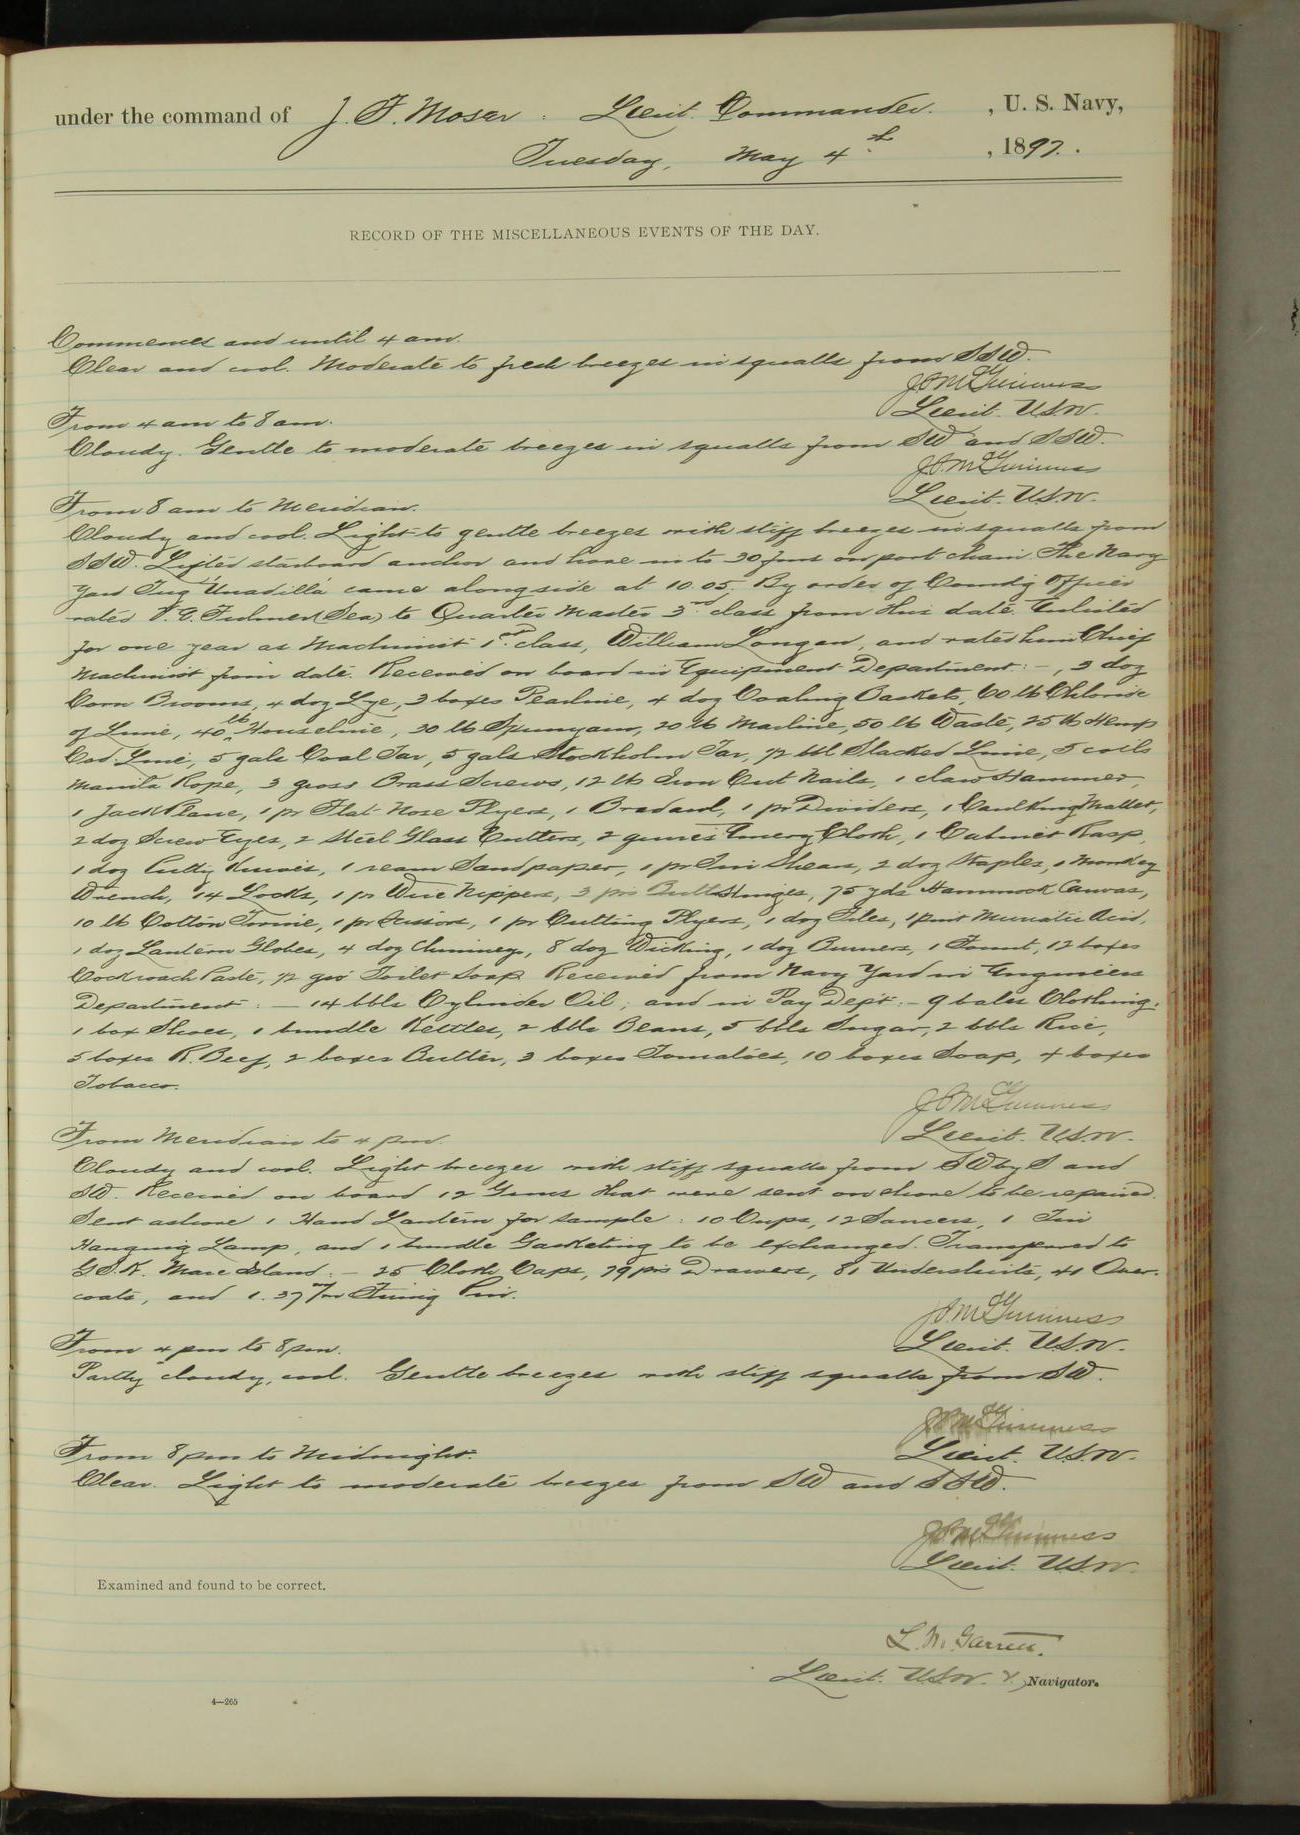 under the command of J. F. Moser. Lieut. Commander. , U. S. Navy,
Tuesday, May 4th , 1897.
RECORD OF THE MISCELLANEOUS EVENTS OF THE DAY.
Commences and until 4 am.
Clear and cool. Moderate to fresh breezes in squalls from SSW.
J. P. McGuinness
Lieut. U.S.N.
From 4 am to 8 am.
Cloudy. Gentle to moderate breezes in squalls from SW and SSW.
J. P. McGuinness
Lieut. U.S.N.
From 8 am to Meridian.
Cloudy and cool. Light to gentle breezes with stiff breezes in squalls from
SSW. Lifted starboard anchor and hove in to 30 fms on port chain. The Navy
Yard Tug "Unadilla" came alongside at 10.05. By order of Comdg Officer
rated V. G. Fulmer (Sea) to Quarter Master 3rd class from this date. Enlisted
for one year as Machinist 1st class, William Longan, and rated him Chief
Machinist from date. Received on board in Equipment Department:-, 3 doz
Corn Brooms, 4 doz Lye, 3 boxes Pearline, 4 doz Coaling Baskets, 60 lb Chloride
of Lime, 40 lb Houseline, 30 lb Spunyarn, 20 lb Marline, 50 lb Waste, 25 lb Hemp
Cod Line, 5 gals Coal Tar, 5 gals Stockholm Tar, 1/2 bbl Slacked Lime, 5 coils
Manila Rope, 3 gross Brass Screws, 12 lb Iron Cut Nails, 1 claw Hammer,
1 Jack Plane, 1 pr Flat Nose Plyers, 1 Bradawl, 1 pr Dividers, 1 Caulking Mallet,
2 doz Screw Eyes, 2 Steel Glass Cutters, 2 quires Emery Cloth, 1 Cabinet Rasp,
1 doz Putty Knives, 1 ream Sandpaper, 1 pr Tin Shears, 2 doz Staples, 1 Monkey
Wrench, 14 Locks, 1 pr Wire Nippers, 3 prs Butt Hinges, 75 yds Hammock Canvas,
10 lb Cotton Twine, 1 pr Scissors, 1 pr Cutting Plyers, 1 doz Files, 1 pint Muriatic Acid,
1 doz Lantern Globes, 4 doz Chimneys, 8 doz Wicking, 1 doz Burners, 1 Fount, 12 boxes
Cockroach Paste, 1/2 gro Toilet Soap. Received from Navy Yard in Engineers
Department:- 14 bbls Cylinder Oil; and in Pay Dept:- 9 bales Clothing,
1 box Shoes, 1 bundle Kettles, 2 bbls Beans, 5 bbls Sugar, 2 bbls Rice,
5 boxes R. Beef, 2 boxes Butter, 3 boxes Tomatoes, 10 boxes Soap, 4 boxes
Tobacco.
J. P. McGuinness
Lieut. U.S.N.
From Meridian to 4 pm.
Cloudy and cool. Light breezes with stiff squalls from SW by S and
SW. Received on board 12 Guns that were sent on shore to be repaired.
Sent ashore 1 Hand Lantern for sample: 10 Cups, 12 Saucers, 1 Tin
Hanging Lamp, and 1 bundle Gasketing to be exchanged. Transferred to
G.S.K. Mare Island:- 25 Cloth Caps, 79 prs Drawers, 81 Undershirts, 41 Over-
coats, and 1. 37 m/m Firing Pin.
J. P. McGuinness
Lieut. U.S.N.
From 4 pm to 8 pm.
Partly cloudy, cool. Gentle breezes with stiff squalls from SW.
J. P. McGuinness
Lieut. U.S.N.
From 8 pm to Midnight.
Clear. Light to moderate breezes from SW and SSW.
J. P. McGuinness
Lieut. U.S.N.
Examined and found to be correct.
L. M. Garrett.
Lieut. U.S.N. & Navigator.
4—265